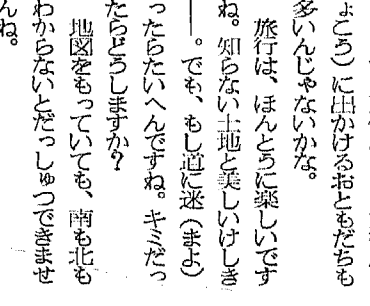 ょこう)に出かけるおともだちも
多いんじゃないかな。
旅行は、ほんとうに楽しいです
ね。知らない土地と美しいけしき
――。でも、もし道に迷(まよ)
ったらたいへんですね。キミだっ
たらどうしますか?
地図をもっていても、南も北も
わからないとだっしゅつできませ
んね。